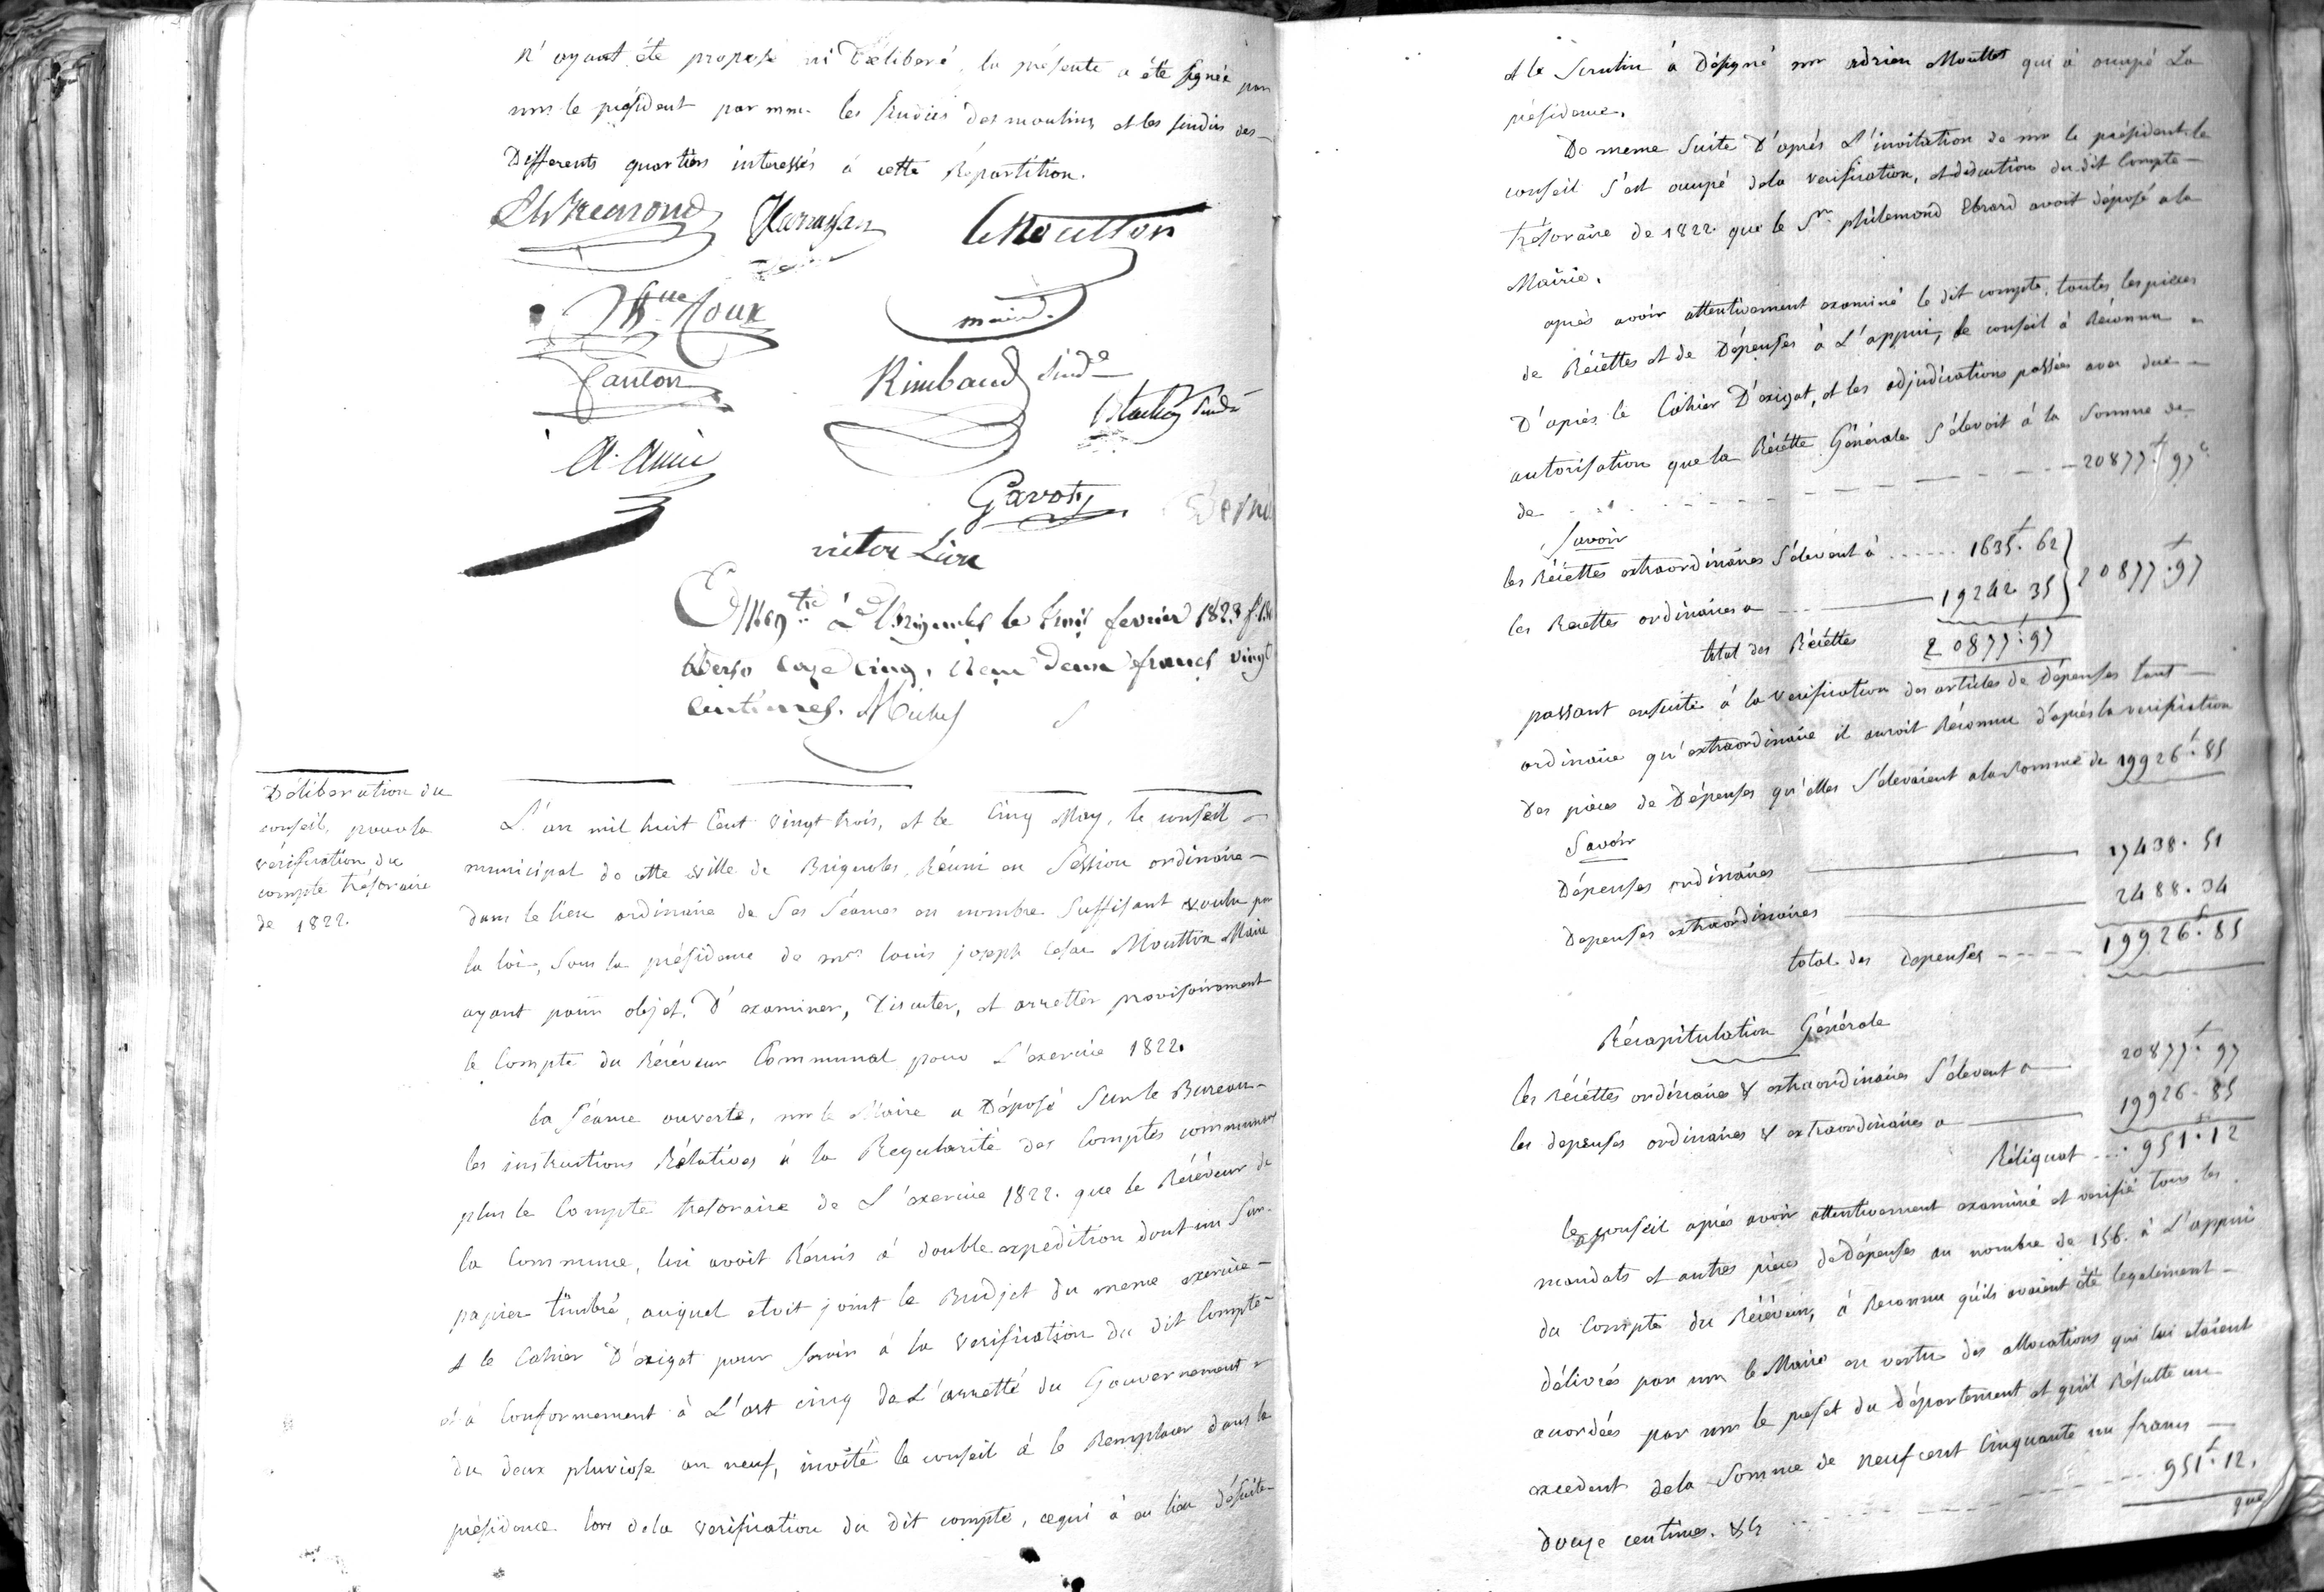 n'ayant été proposé ni Déliberé, la présente a été signée par
mr. le président par mm. les sindics des moulins et les sindics des
Differents quartiers interessés à cette Répartition.
maire
Rimbaud sindc
A. Amic
Gavoty
victor Lion
à Brignoles le trois fevrier 1823
verso caze cinq, recu deux francs vingt
centimes. Michel
Déliberation du
conseil, pour la
vérification du
compte trésoraire
de 1822.
L'an mil huit Cent vingt trois, et le Cinq May, le conseil
municipal de cette ville de Brignoles, Réuni en Session ordinaire
dans le lieu ordinaire de ses séances en nombre suffisant voulu par
la loi, sous la présidence de mr. louis joseph César Moutton Maire
ayant pour objet, D'examiner, Discuter, et arretter provisoirement
le Compte du Récéveur Communal pour L'exercice 1822.
la Séance ouverte, mr. le Maire a Déposé sur le Bureau
les instructions Rélatives à la Regularité des Comptes communaux
plus le Compte tresoraire de L'exercice 1822. que le Récéveur de
la Commune, lui avoit Rémis à double expedition dont un sur
papier timbré, auquel etoit joint le Budjet du meme exercice
et le Cahier D'exigat pour servir à la verification du dit Compte
et à Conformement à L'art cinq de L'arretté du Gouvernement
du deux pluviose an neuf, invité le conseil à le Remplacer dans la
présidence lors dela verification du dit compte, cequi à eu lieu désuite
et le Scrutin à Désigné mr adrien Mouttet qui à occupé La
présidence.
De meme suite D'après L'invitation de mr le président le
conseil s'est occupé dela verification, et discution du dit Compte
trésoraire de 1822. que le Sr. philemond Ebrard avoit déposé a la
Mairie.
après avoir attentivement examiné le dit compte, toutes les pieces
de Récéttes et de Dépenses à L'appui, le conseil à Réconnu
D'après le Cahier D'exigat, et les adjudications passées avec due
autorisation que la Récétte Générale s'élevoit à la Somme de
de - - - 20877f 97c
Savoir
les Récéttes extraordinaires s'élevent à ...... 1635f. 62 } 20877f.97
les Recettes ordinaires a - - - 19242. 35
total des Récéttes 20877f.97
passant ensuite à la verification des articles de Dépenses tant
ordinaire qu'extraordinaire il auroit Réconnu d'après la verification
des pièces de Dépenses qu'elles s'élevaient a la somme de 19926f. 85
Savoir
Dépenses ordinaires 17438. 51
Depenses extraordinaires 2488. 34
total des depenses - - - - - 19926f. 85
Récapitulation Générale
les Récéttes ordinaires & extraordinaires s'élevent a 20877f. 97
les depenses ordinaires & extraordinaires a 19926. 85
Réliquat ... 951f. 12
le conseil après avoir attentivement examiné et verifié tous les
mandats et autres pièces de Dépenses au nombre de 156. à L'appui
du Compte du Récéveur, à Reconnu qu'ils avaient été legalement
délivrés par mr le Maire en vertu des allocations qui lui etaient
accordées par mr le prefet du département et qu'il Résulte un
excedent dela Somme de neuf cent Cinquante un francs
douze centimes. - - - 951f. 12.
que